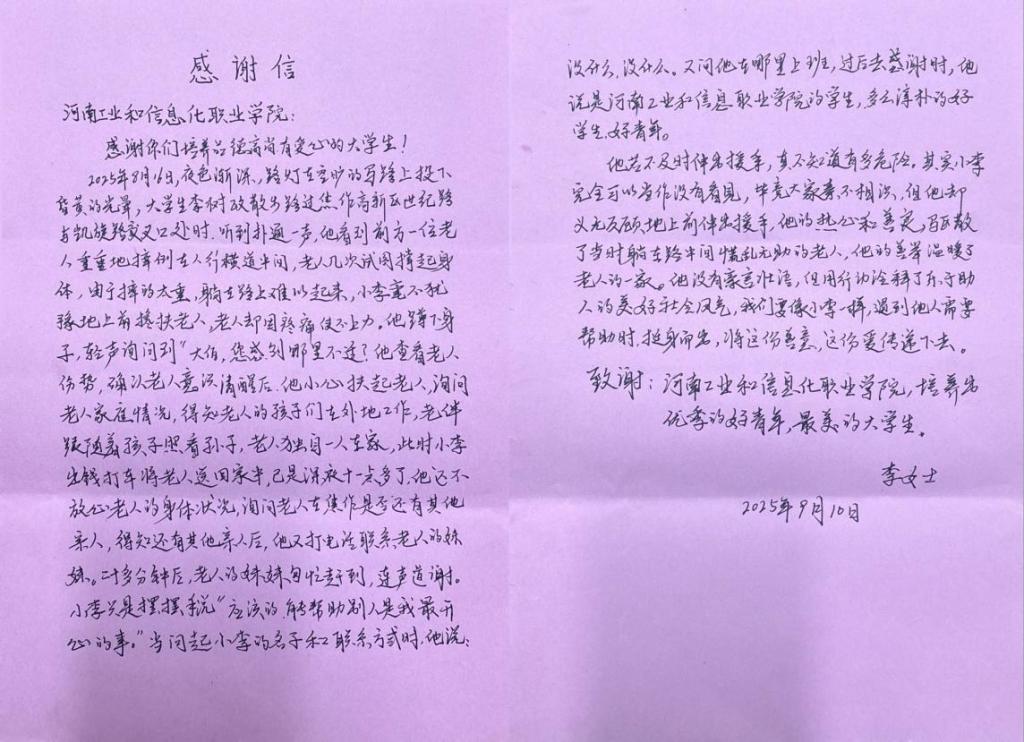 感谢信
河南工业和信息化职业学院：
感谢你们培养品德高尚有爱心的大学生！
2025年8月16日，夜色渐深，路灯在寂静的马路上投下
昏黄的光晕，大学生李树政散步路过焦作高新区世纪路
与凯旋路交叉口处时，听到扑通一声，他看到前方一位老
人重重地摔倒在人行横道中间，老人几次试图撑起身
体，由于摔的太重，躺在路上难以起来，小李毫不犹
豫地上前搀扶老人，老人却因疼痛使不上力。他蹲下身
子，轻声询问到“大伯，您感到哪里不适？他查看老人
伤势，确认老人意识清醒后，他小心扶起老人，询问
老人家庭情况，得知老人的孩子们在外地工作，老伴
跟随着孩子照看孙子，老人独自一人在家，此时小李
出钱打车将老人送回家中，已是深夜十一点多了，他还不
放心老人的身体状况，询问老人在焦作是否还有其他
亲人，得知还有其他亲人后，他又打电话联系老人的妹
妹。二十多分钟后，老人的妹妹匆忙赶到，连声道谢。
小李只是摆摆手说“应该的，能帮助别人是我最开
心的事。”当问起小李的名子和联系方式时，他说：
没什么，没什么。又问他在哪里上班，过后去感谢时，他
说是河南工业和信息职业学院的学生，多么淳朴的好
学生，好青年。
他若不及时伸出援手，真不知道有多危险。其实小李
完全可以当作没有看见，毕竟大家素不相识，但他却
义无反顾地上前伸出援手，他的热心和善良，
了当时躺在路中间慌乱无助的老人，他的善举温暖了
老人的一家。他没有豪言壮语，但用行动诠释了乐于助
人的美好社会风气，我们要像小李一样，遇到他人需要
帮助时，挺身而出，将这份善意，这份爱传递下去。
致谢：河南工业和信息化职业学院，培养出
优秀的好青年，最美的大学生。
李女士
2025年9月10日